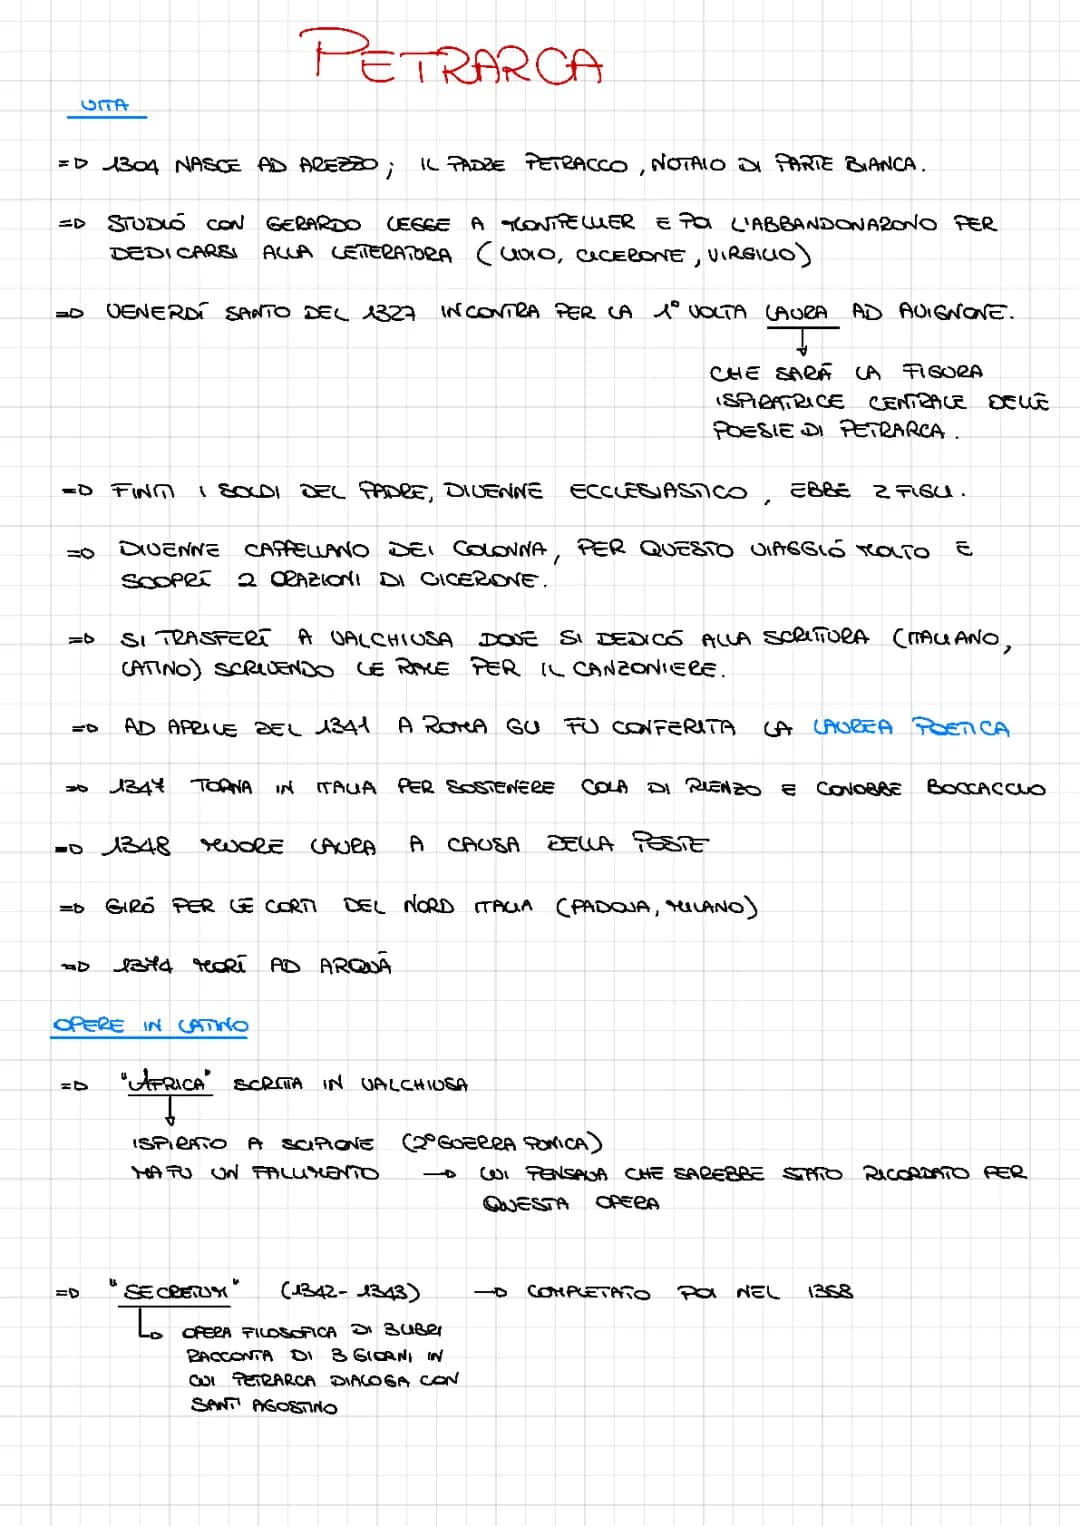 PETRARCA
VITA
=D 1304 NASCE AD AREZZO; IL PADRE PETRACCO, NOTAIO DI PARTE BIANCA.
=D STUDIÓ CON GERARDO LEGGE A MONTPELLIER E POI L'ABBANDONARONO PER
DEDICARSI ALLA LETTERATURA (LIVIO, CICERONE, VIRGILIO)
=D VENERDÍ SANTO DEL 1327 INCONTRA PER LA 1° VOLTA LAURA AD AVIGNONE.
CHE SARÁ LA FIGURA
ISPIRATRICE CENTRALE DELLE
POESIE DI PETRARCA.
=D FINITI I SOLDI DEL PADRE, DIVENNE ECCLESIASTICO, EBBE 2 FIGLI.
=D DIVENNE CAPPELLANO DEI COLONNA, PER QUESTO VIAGGIÓ MOLTO E
SCOPRÍ 2 ORAZIONI DI CICERONE.
=D SI TRASFERÍ A VALCHIUSA DOVE SI DEDICÓ ALLA SCRITTURA (ITALIANO,
LATINO) SCRIVENDO LE RIME PER IL CANZONIERE.
=D AD APRILE DEL 1341 A ROMA GLI FU CONFERITA LA LAUREA POETICA
=D 1347 TORNA IN ITALIA PER SOSTENERE COLA DI RIENZO E CONOBBE BOCCACCIO
=D 1348 MUORE LAURA A CAUSA DELLA PESTE
=D GIRÓ PER LE CORTI DEL NORD ITALIA (PADOVA, MILANO)
=D 1374 MORÍ AD ARQUÁ
OPERE IN LATINO
=D "AFRICA" SCRITTA IN VALCHIUSA
ISPIRATO A SCIPIONE (2° GUERRA PUNICA)
MA FU UN FALLIMENTO → LUI PENSAVA CHE SAREBBE STATO RICORDATO PER
QUESTA OPERA
=D "SECRETUM" (1342-1343) → COMPLETATO POI NEL 1358
OPERA FILOSOFICA DI 3 LIBRI
RACCONTA DI 3 GIORNI IN
CUI PETRARCA DIALOGA CON
SANT' AGOSTINO